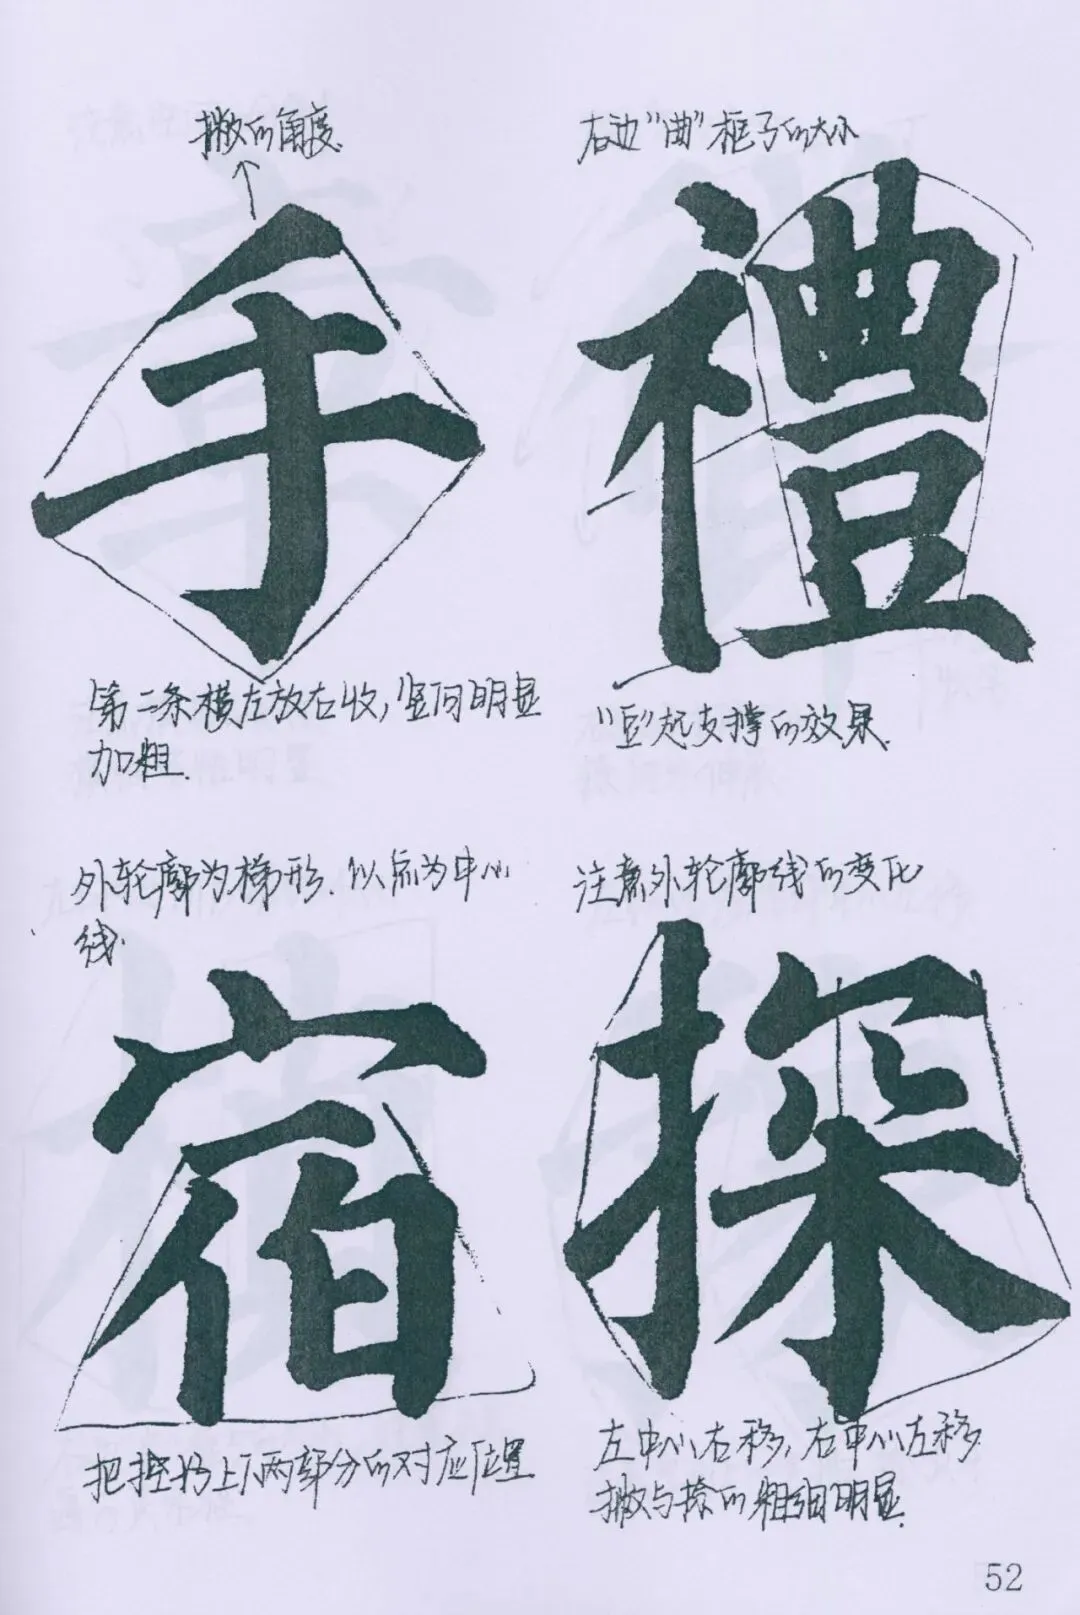 撇的角度
手
第二条横左放右收,竖向明显
加粗.
右边"曲"框子的大小
禮
"豆"起支撑的效果.
外轮廓为梯形.以点为中心
线.
宿
把控好上下两部分的对应位置
注意外轮廓线的变化
探
左中心右移,右中心左移.
撇与捺的粗细明显.
52